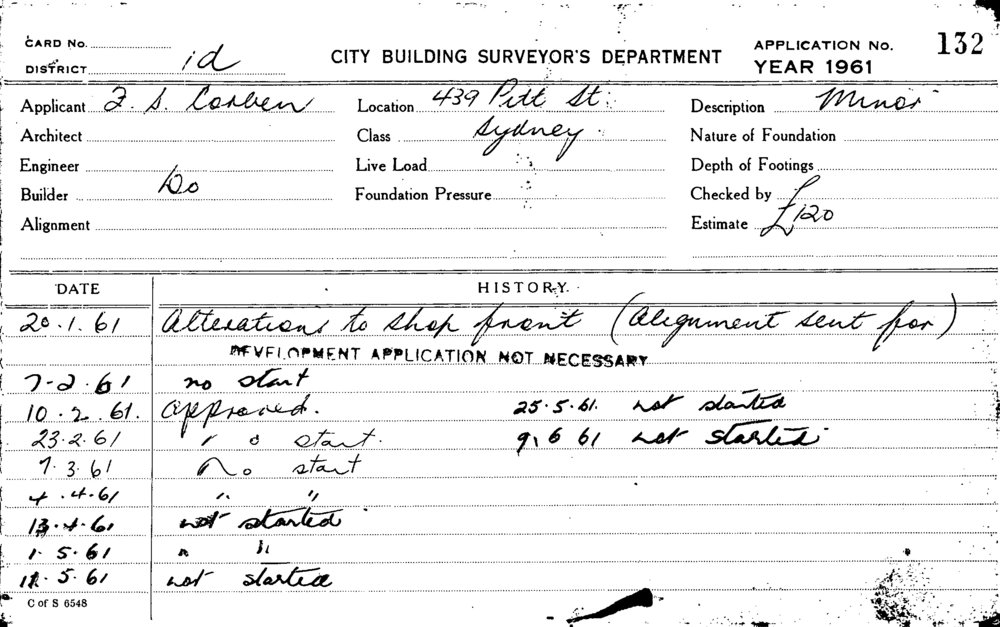 CARD No.
DISTRICT id
CITY BUILDING SURVEYOR'S DEPARTMENT
APPLICATION No. 132
YEAR 1961
Applicant F. S. Corben Location 439 Pitt St. Description Minor
Architect Class Sydney Nature of Foundation
Engineer Live Load Depth of Footings
Builder Do Foundation Pressure Checked by
Alignment Estimate £120
DATE HISTORY
20.1.61 Alterations to shop front (Alignment sent for)
DEVELOPMENT APPLICATION NOT NECESSARY
7-2.61 no start
10.2.61. Approved. 25.5.61. not started
23.2.61 no start. 9.6 61 not started
7.3.61 No start
4.4.61 " "
13.4.61 not started
1.5.61 " "
11.5.61 not started
C of S 6548